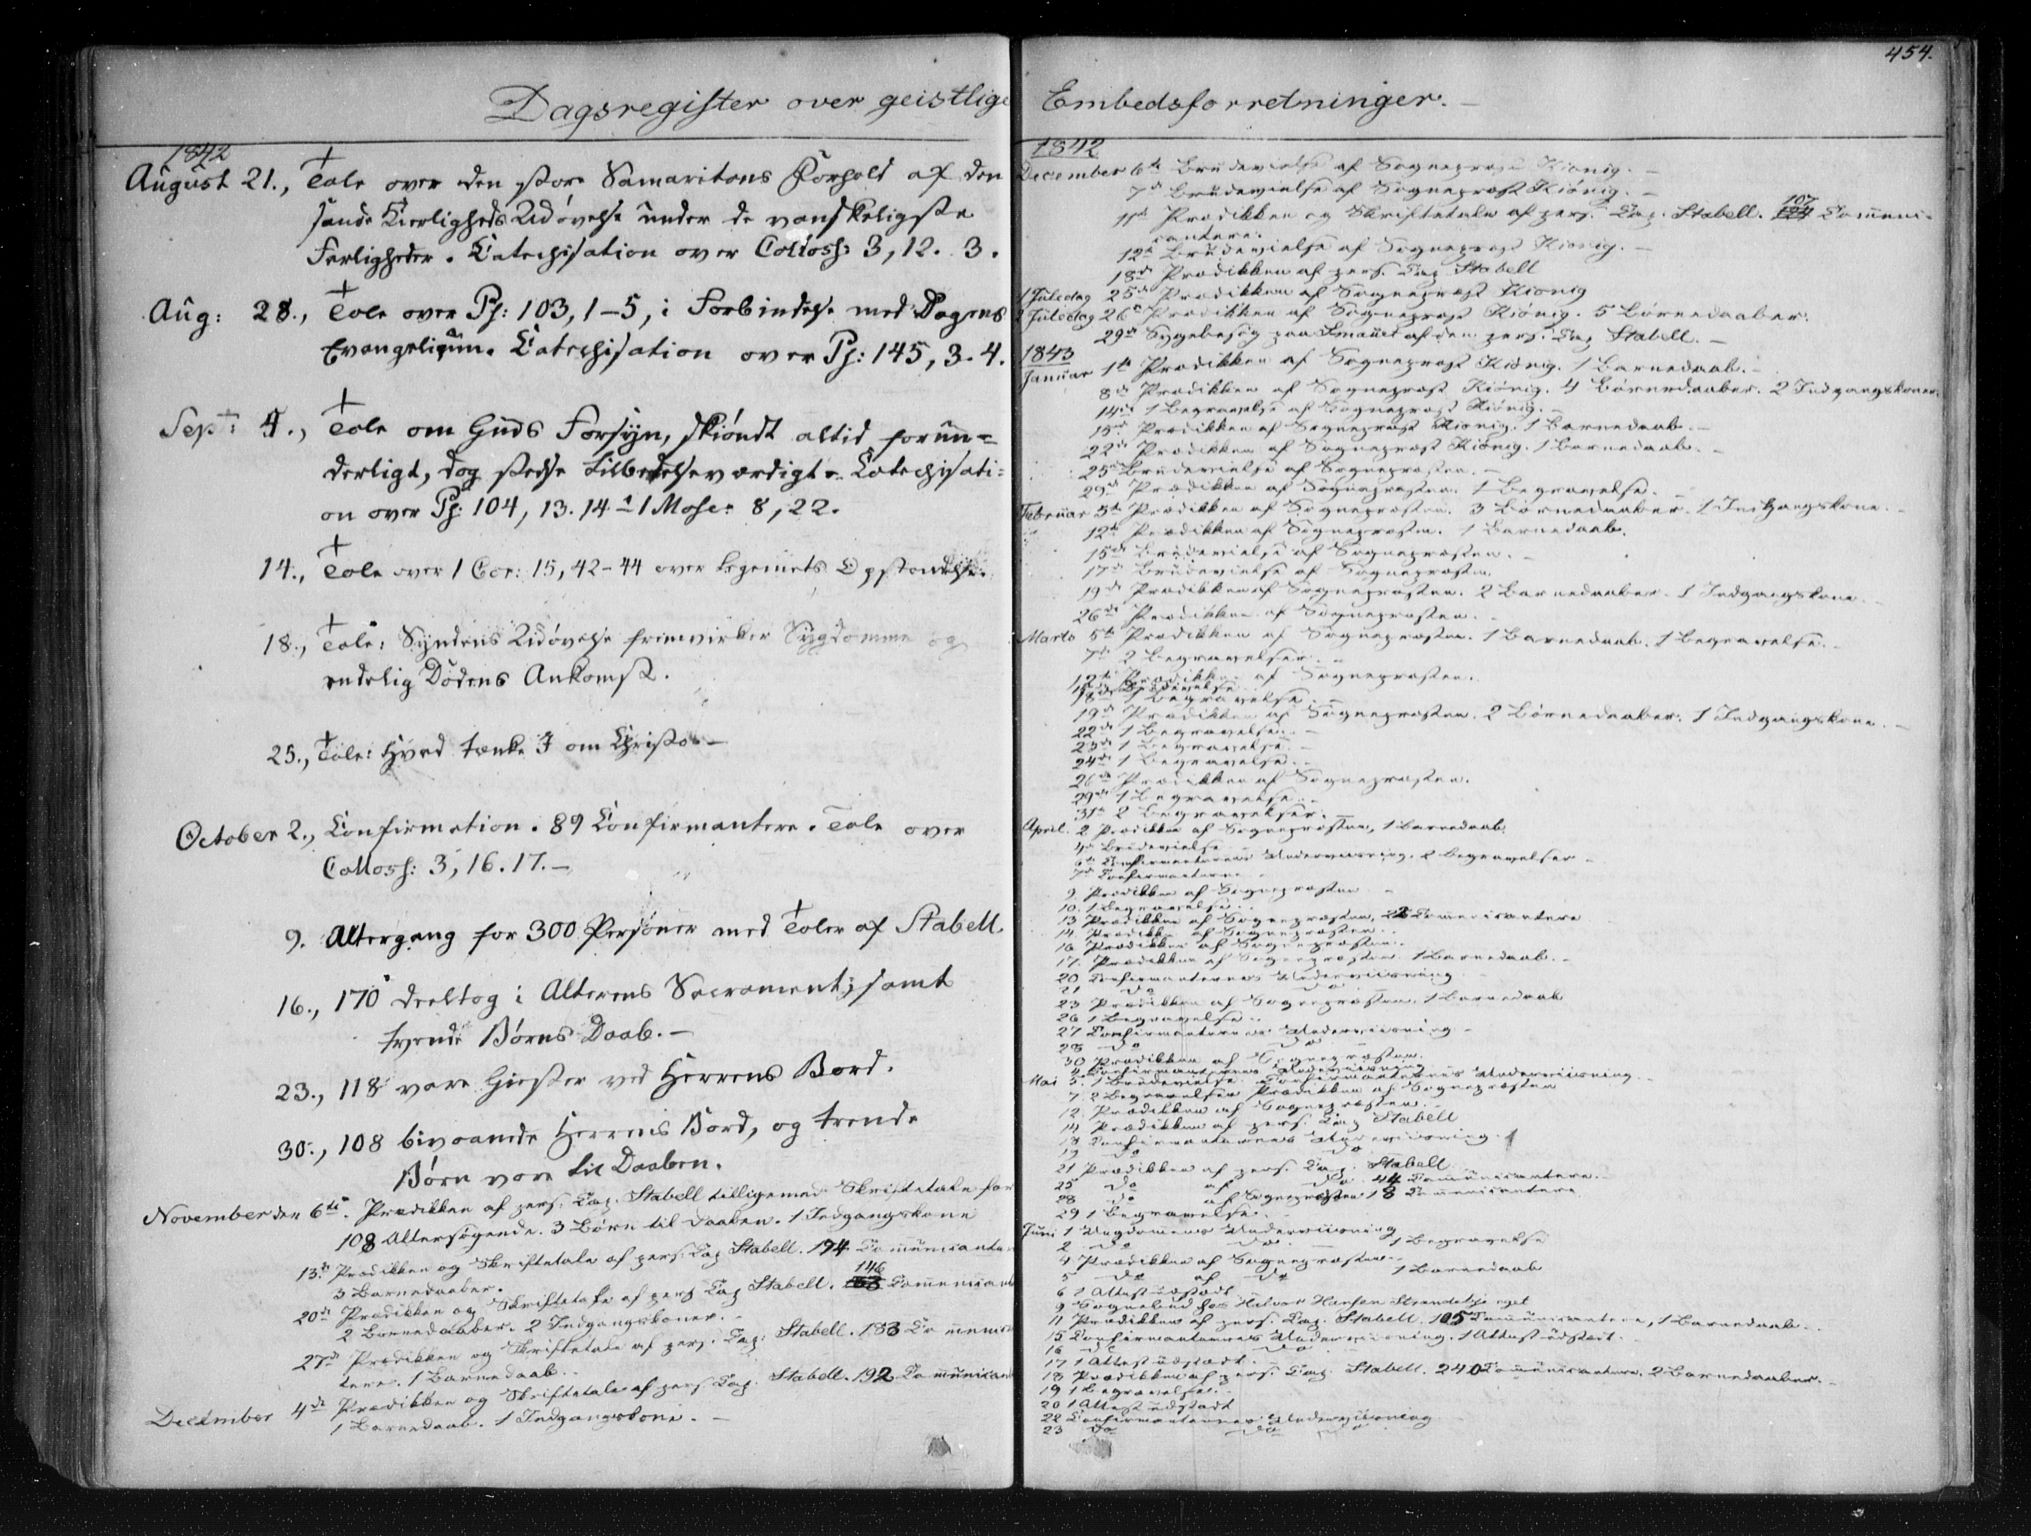 Dagsregister over geistlige
1842
August 21., Tale over den store Samaritans Forhold af den
sande Kierligheds Udøvelse under de vanskeligste
Farligheder. Catechisation over Colloss: 3, 12. 3.
Aug: 28., Tale over Ps: 103, 1-5, i Forbindelse med Dagens
Evangelium. Catechisation over Ps: 145, 3-4.
Sept: 4., Tale om Guds Forsyn, skiøndt altid forun=
derligt, dog stedse tilbedelseværdigt. Catechisati=
on over Ps: 104, 13. 14 1 Mose: 8, 22.
14., Tale over 1 Cor: 15, 42-44 over Legemets Opstandelse.
18., Tale: Syndens Udøvelse fremvirker Sygdomme og
endelig Dødens Ankomst.
25., Tale: Hvad tænke I om Christo. —
October 2., Confirmation. 89 Confirmantere. Tale over
Colloss: 3, 16. 17. —
9. Altergang for 300 Personer med Taler af Stabell.
16., 170 deeltog i Alterens Sacrament; samt
tvende Børns Daab. —
23., 118 vare Giester ved Herrens Bord.
30., 108 bivaanede Herrens Bord, og trende
Børn vare til Daaben.
November den 6te. Prædikken af pers. Cap. Stabell tilligemed Skriftetale for
108 Altersøgende. 3 Børn til Daaben. 1 Indgangskone
13de Prædikken og Skriftetale af pers. Cap Stabell. 194 Communicanter
3 Barnedaaber.
20de Prædikken og Skriftetale af pers Cap Stabell. 146 Communicant
2 Barnedaaber. 2 Indgangskoner.
27de Prædikken og Skriftetale af pers. Cap. Stabell. 183 Communican
tere. 1 Barnedaab.
December 4de Prædikken og Skriftetale af pers Cap. Stabell. 192 Communicant
1 Barnedaab. 1 Indgangskone. —
454.
Embedsforretninger. —
1842
December 6te Brudevielse af Sognepræst Kiönig. —
7de Brudevielse af Sognepræst Kiönig. —
11te Prædikken og Skriftetale af pers. Cap. Stabell. 107 Communi-
cantere.
12te Brudevielse af Sognepræst Kiönig. —
18de Prædikken af pers. Cap Stabell
1 Juledag 25de Prædikken af Sognepræst Kiönig
2 Juledag 26de Prædikken af Sognepræst Kiönig. 5 Børnedaaber.
29de Sygebesøg paa af den pers. Cap Stabell. —
1843
Januar 1te Prædikken af Sognepræst Kiönig. 1 Barnedaab. —
8de Prædikken af Sognepræst Kiönig. 4 Børnedaaber. 2 Indgangskoner.
14de 1 Begravelse af Sognepræst Kiönig. —
15de Prædikken af Sognepræst Kiönig. 1 Barnedaab. —
22de Prædikken af Sognepræst Kiönig. 1 Barnedaab. —
25de Brudevielse af Sognepræsten. —
29de Prædikken af Sognepræsten. 1 Begravelse. —
Februar 5te Prædikken af Sognepræsten. 3 Børnedaaber. 1 Indgangskone. —
12te Prædikken af Sognepræsten. 1 Barnedaab.
15de Brudevielse af Sognepræsten. —
17de Brudevielse af Sognepræsten.
19de Prædikken af Sognepræsten. 2 Barnedaaber. 1 Indgangskone. —
26de Prædikken af Sognepræsten. —
Marts 5te Prædikken af Sognepræsten. 1 Barnedaab. 1 Begravelse. —
7de 2 Begravelser. —
12te Prædikken af Sognepræsten.
Brudevielse
18de 1 Begravelse. —
19de Prædikken af Sognepræsten. 2 Børnedaaber. 1 Indgangskone. —
22de 1 Begravelse. —
23de 1 Begravelse. —
24de 1 Begravelse. —
26de Prædikken af Sognepræsten.
29de 1 Begravelse. —
31te 2 Begravelser. —
April. 2 Prædikken af Sognepræsten, 1 Barnedaab.
4de Brudevielse
6te Confirmanternes Underviisning. 2 Begravelser —
7de Confirmanterne —
9. Prædikken af Sognepræsten —
10. 1 Begravelse. —
13 Prædikken af Sognepræsten, Communicantere
14. Prædikken af Sognepræsten. —
16 Prædikken af Sognepræsten. —
17. Prædikken af Sognepræsten 1 Barnedaab. —
20 Confirmanternes Underviisning —
21 do do
23 Prædikken af Sognepræsten. 1 Barnedaab
26 1 Begravelse. —
27 Confirmanternes Underviisning —
28 do do
30 Prædikken af Sognepræsten.
Confirmanternes Underviisning
Mai 5. 1 Brudevielse. Confirmanternes Underviisning. —
7. 2 Begravelser Prædikken af Sognepræsten
12. Prædikken af Sognepræsten. —
14 Prædikken af pers. Cap Stabell
18 Confirmanternes Underviisning.
19 do do
21 Prædikken af pers. Cap. Stabell
25 do af do. 44 Communicantere. —
28 do af Sognepræsten 18 Communicantere
29 1 Begravelse. —
Juni 1 Ungdommens Underviisning
2 do do — 1 Begravelse
4 Prædikken af Sognepræsten. —
5 do af do 1 Barnedaab
6 1 Attest udstædt
9 Sognebud hos Halvor Hansen
11 Prædikken af pers. Cap. Stabell. 105 Communicantere, 1 Barnedaab. —
15 Confirmanternes Underviisning. 1 Attest udstædt. —
16 do do
17 1 Attest udstædt. —
18 Prædikken af pers. Cap. Stabell. 240 Communicantere. 2 Barnedaaber. —
19 1 Begravelse. —
20 1 Attest udstædt
22 Confirmanternes Underviisning
23 do do do